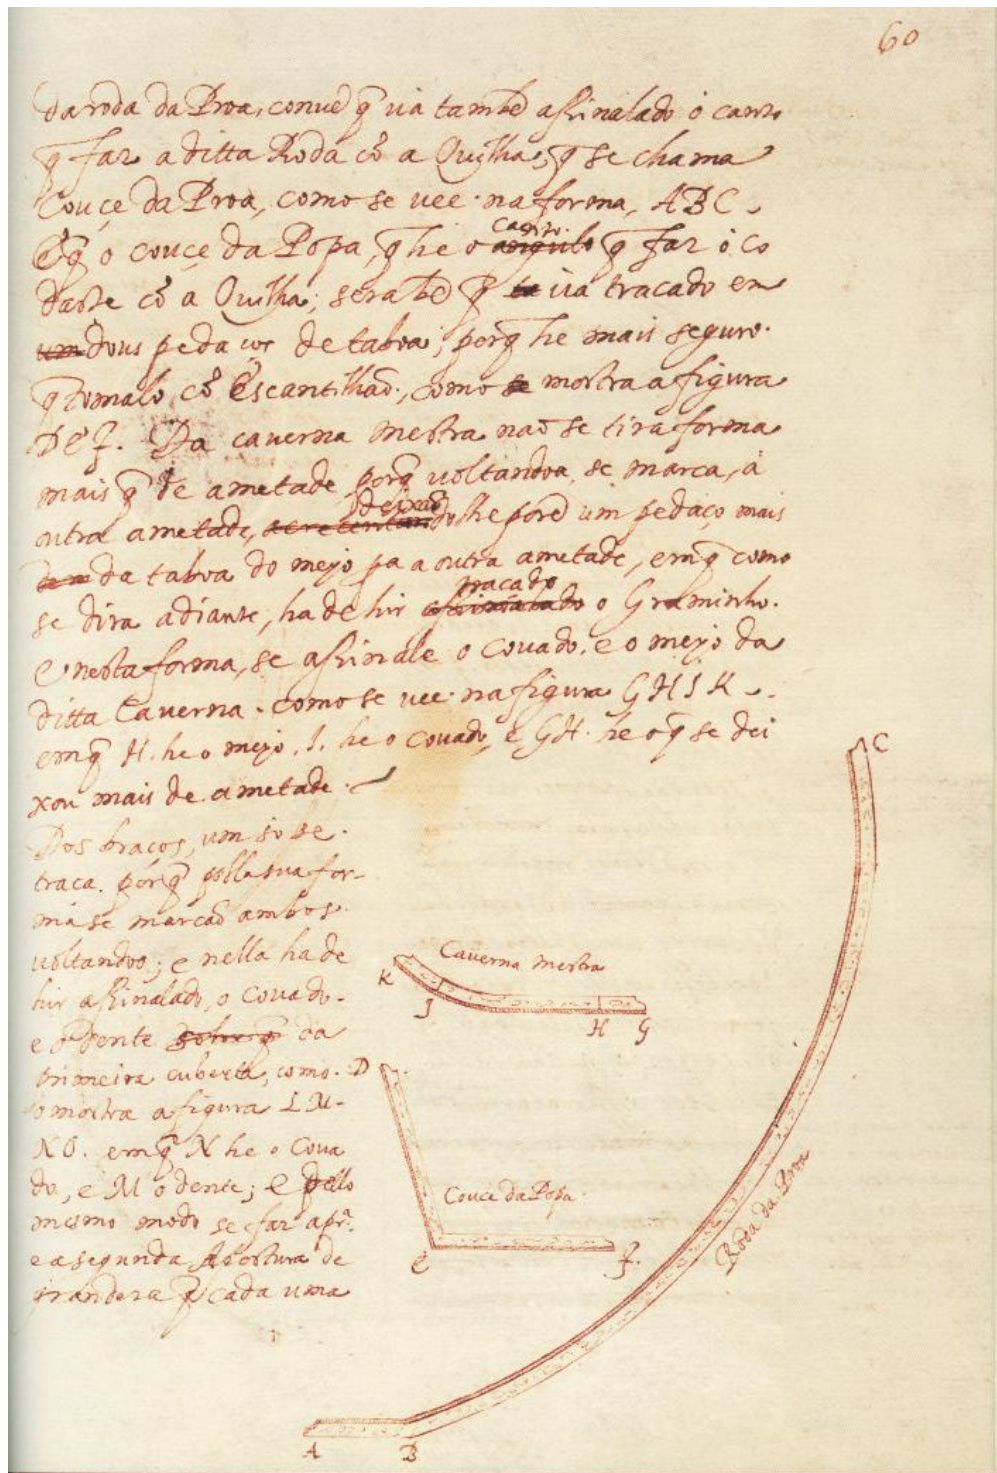 60
da roda da Proa, conuẽ q̃ uá tambẽ assinalado o canto
q̃ faz a ditta Roda cõ a Quilha, q̃ se chama
Couçe da Proa, como se uee na forma, ABC.
E q̃ o couçe da Popa, q̃ he o angulo canto q̃ faz o Co
daste cõ a Quilha; sera bẽ q̃ ua tracado en
um dous pedaços de taboa; porq̃ he mais seguro.
q̃ tomalo cõ Escantilhaõ, como se mostra a figura
DEF. Da caverna mestra naõ se tira forma
mais q̃ de ametade porq̃ uoltandoa, se marca, a
outra ametade, acrecentando deixaõ dolhe porẽ um pedaço mais
da taboa do meyo pa a outra ametade, emq̃ como
se dira adiante, ha de hir assinalado tracado o Graminho.
e nesta forma, se assinale o Couado, e o meyo da
ditta Caverna. como se uee na figura GHIK.
emq̃ H. he o meyo. I. he o couado, e GH. he o q̃ se dei
xou mais de ametade.
Dos braços, um só se
traca. porq̃ pella sua for-
ma se marcaõ ambos
uoltandoo; e nella ha de
hir assinalado, o Couado.
e o Dente sobre q̃ da
primeira cuberta, como.
o mostra a figura LM-
NO. emq̃ N he o Coua
do, e M o dente; e pello
mesmo modo se faz a pr.ª
e a segunda Abertura de
grandeza q̃ cada uma
C
Caverna mestra
K
I
H
G
D
Couce da Popa
E
F.
Roda da Proa
A
B